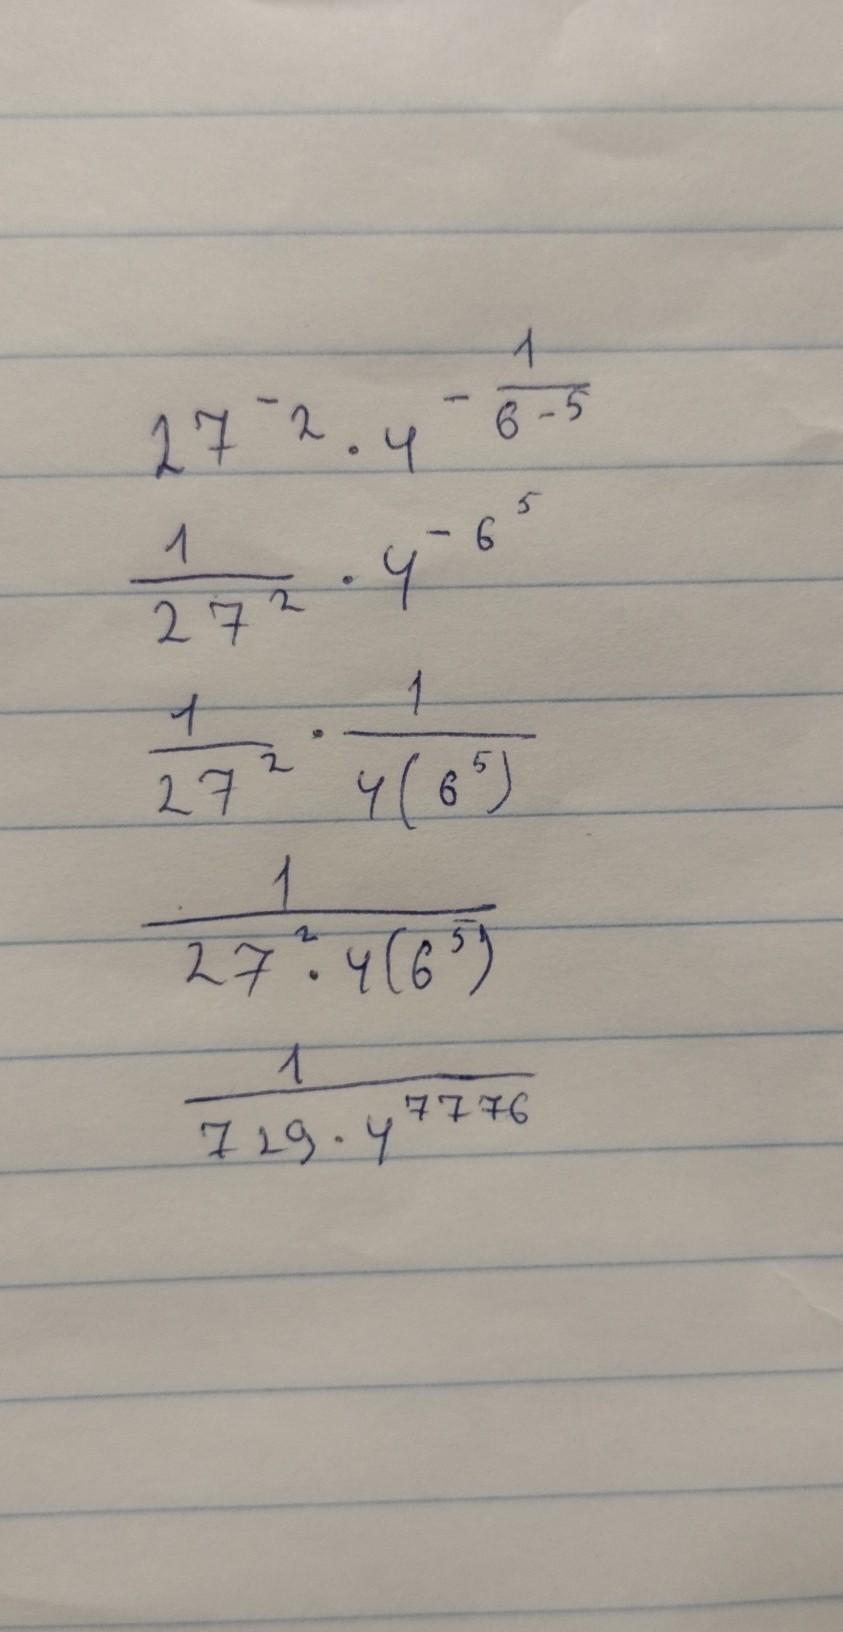 27^{-2} · 4^{-\frac{1}{6-5}}
\frac{1}{27^2} · 4^{-6^5}
\frac{1}{27^2} · \frac{1}{4(6^5)}
\frac{1}{27^2 · 4(6^5)}
\frac{1}{729 · 4^{7776}}